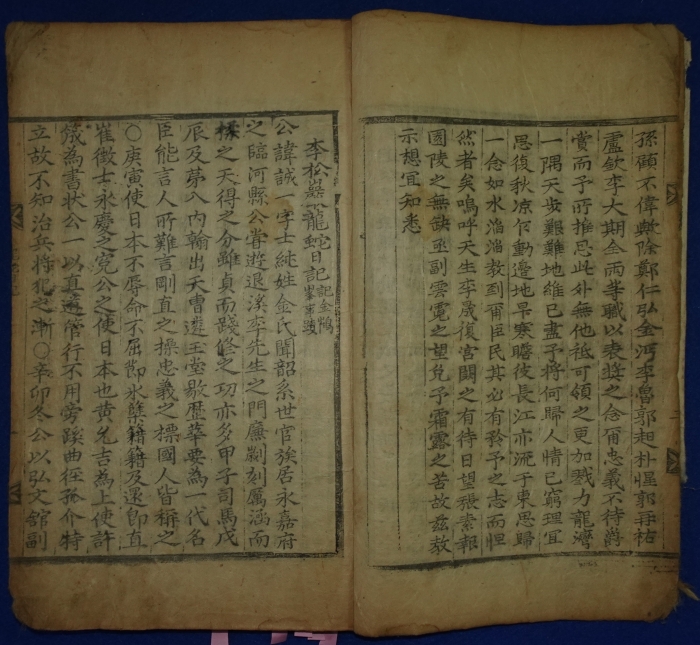 孫顧不偉歟陞鄭仁弘金沔李魯郭䞭朴惺郭再祐
盧欽李大期全雨等職以表奬之念爾忠義不待爵
賞而予所推恩此外無他祗可領之更加戮力龍灣
一隅天步艱難地維已盡予將何歸人情已窮理宜
思復秋凉乍動邊地早寒瞻彼長江亦流于東思歸
一念如水滔滔教到爾臣民其必有矜予之志而怛
然者矣嗚呼天生李晟復宮闕之有待日望張素報
園陵之無缺亟副雲霓之望免予霜露之苦故玆教
示想宜知悉
李松巖龍蛇日記記金鶴峯事蹟
公諱誠一字士純姓金氏聞韶系世官族居永嘉府
之臨河縣公甞遊退溪李先生之門廉劌刻厲涵而
揉之天得之分雖貞而踐修之功亦多甲子司馬戊
辰及第八內翰出天曹遶玉堂敭歷華要為一代名
臣能言人所難言剛直之操忠義之標國人皆稱之
○庚寅使日本不辱命不屈節氷蘖籍籍及還卽直
崔徵士永慶之寃公之使日本也黃允吉為上使許
筬為書狀公一以直遂管行不用旁蹊曲徑孤介特
立故不知治兵將犯之漸○辛卯冬公以弘文舘副